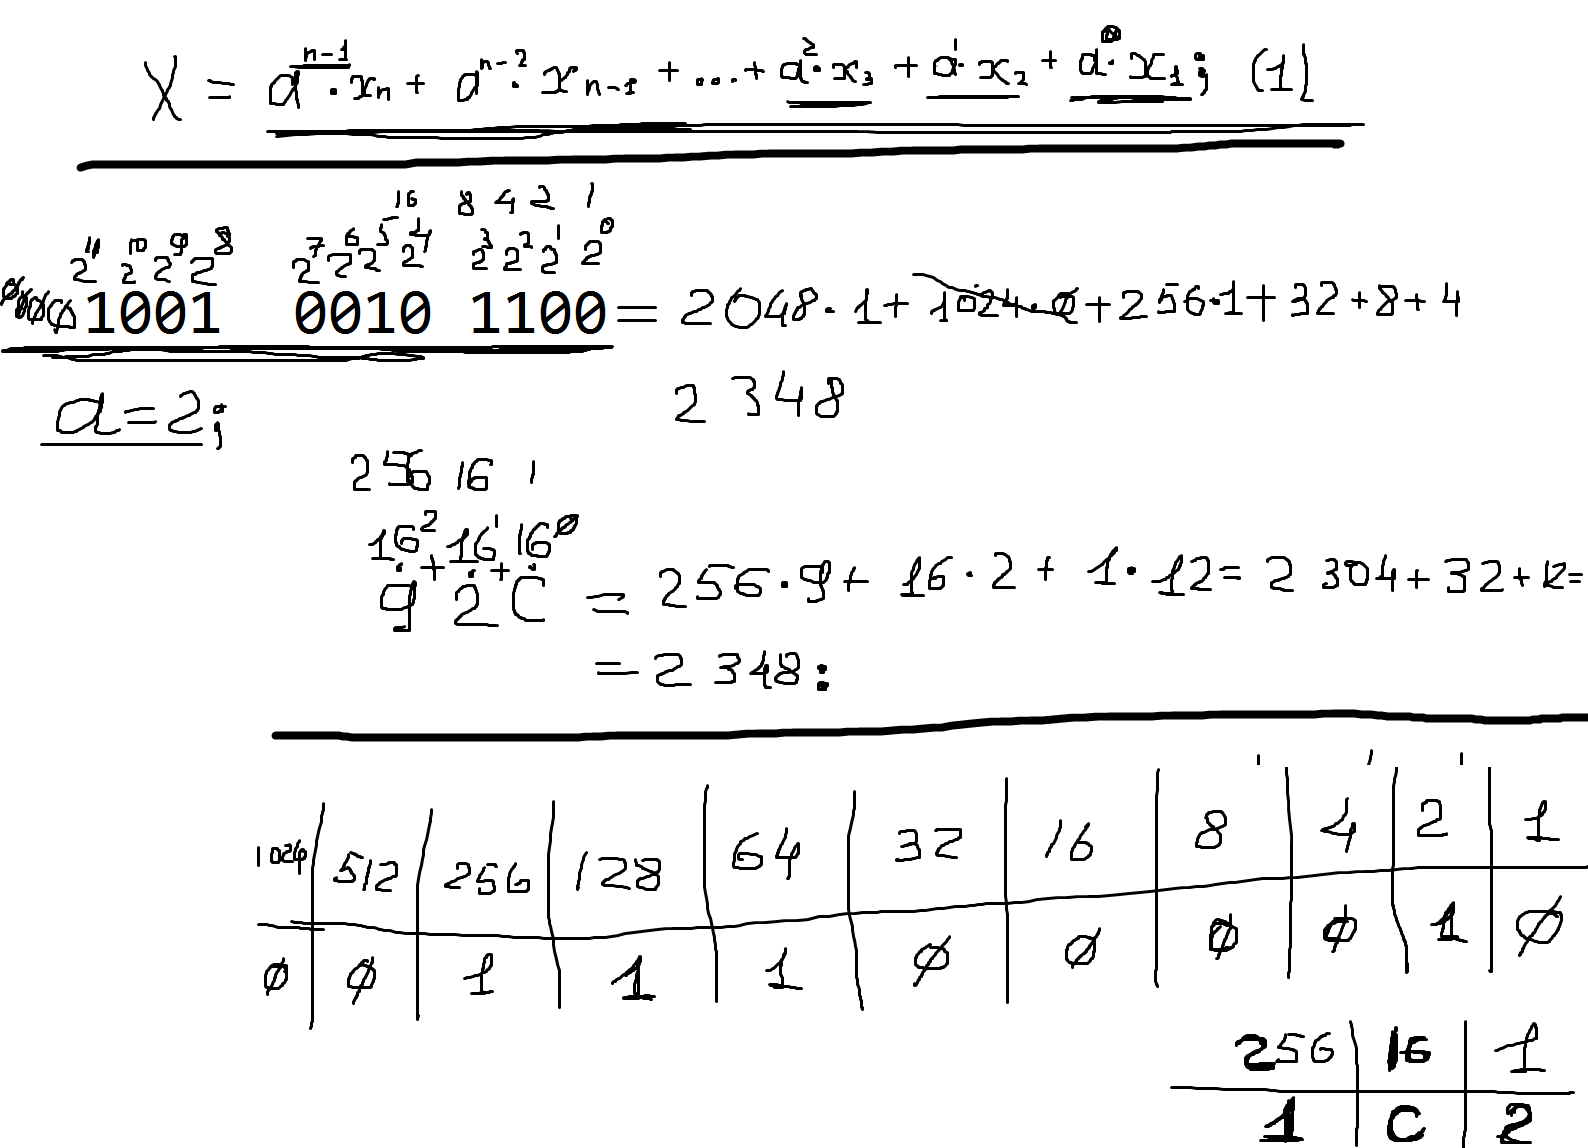 X = a^(n-1) · x_n + a^(n-2) · x_(n-1) + ... + a^2 · x_3 + a^1 · x_2 + a^0 · x_1; (1)
16 8 4 2 1
2^11 2^10 2^9 2^8 2^7 2^6 2^5 2^4 2^3 2^2 2^1 2^0
1001 0010 1100 = 2048·1 + 1024·0 + 256·1 + 32 + 8 + 4
2 348
a = 2;
256 16 1
16^2 + 16^1 + 16^0
9 2 C = 256·9 + 16·2 + 1·12 = 2 304 + 32 + 12 =
= 2 348:
1024 512 256 128 64 32 16 8 4 2 1
0 0 1 1 1 0 0 0 0 1 0
256 16 1
1 C 2